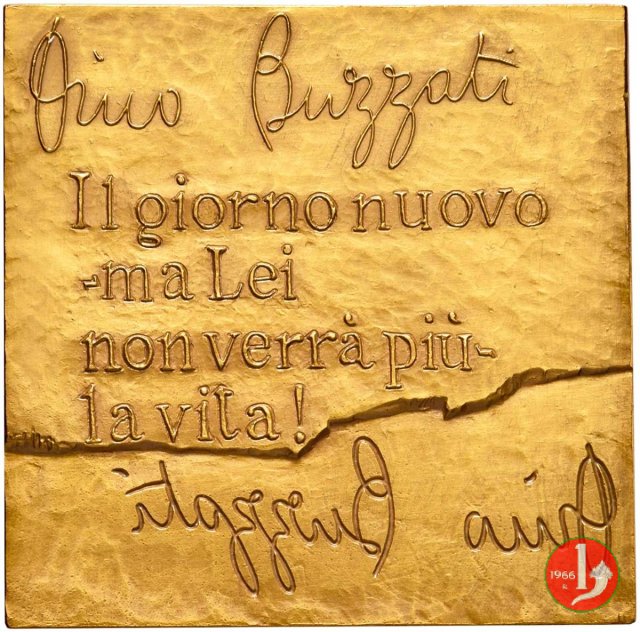 Dino Buzzati
Il giorno nuovo
-ma Lei
non verrà più-
la vita!
Dino Buzzati
1966
R